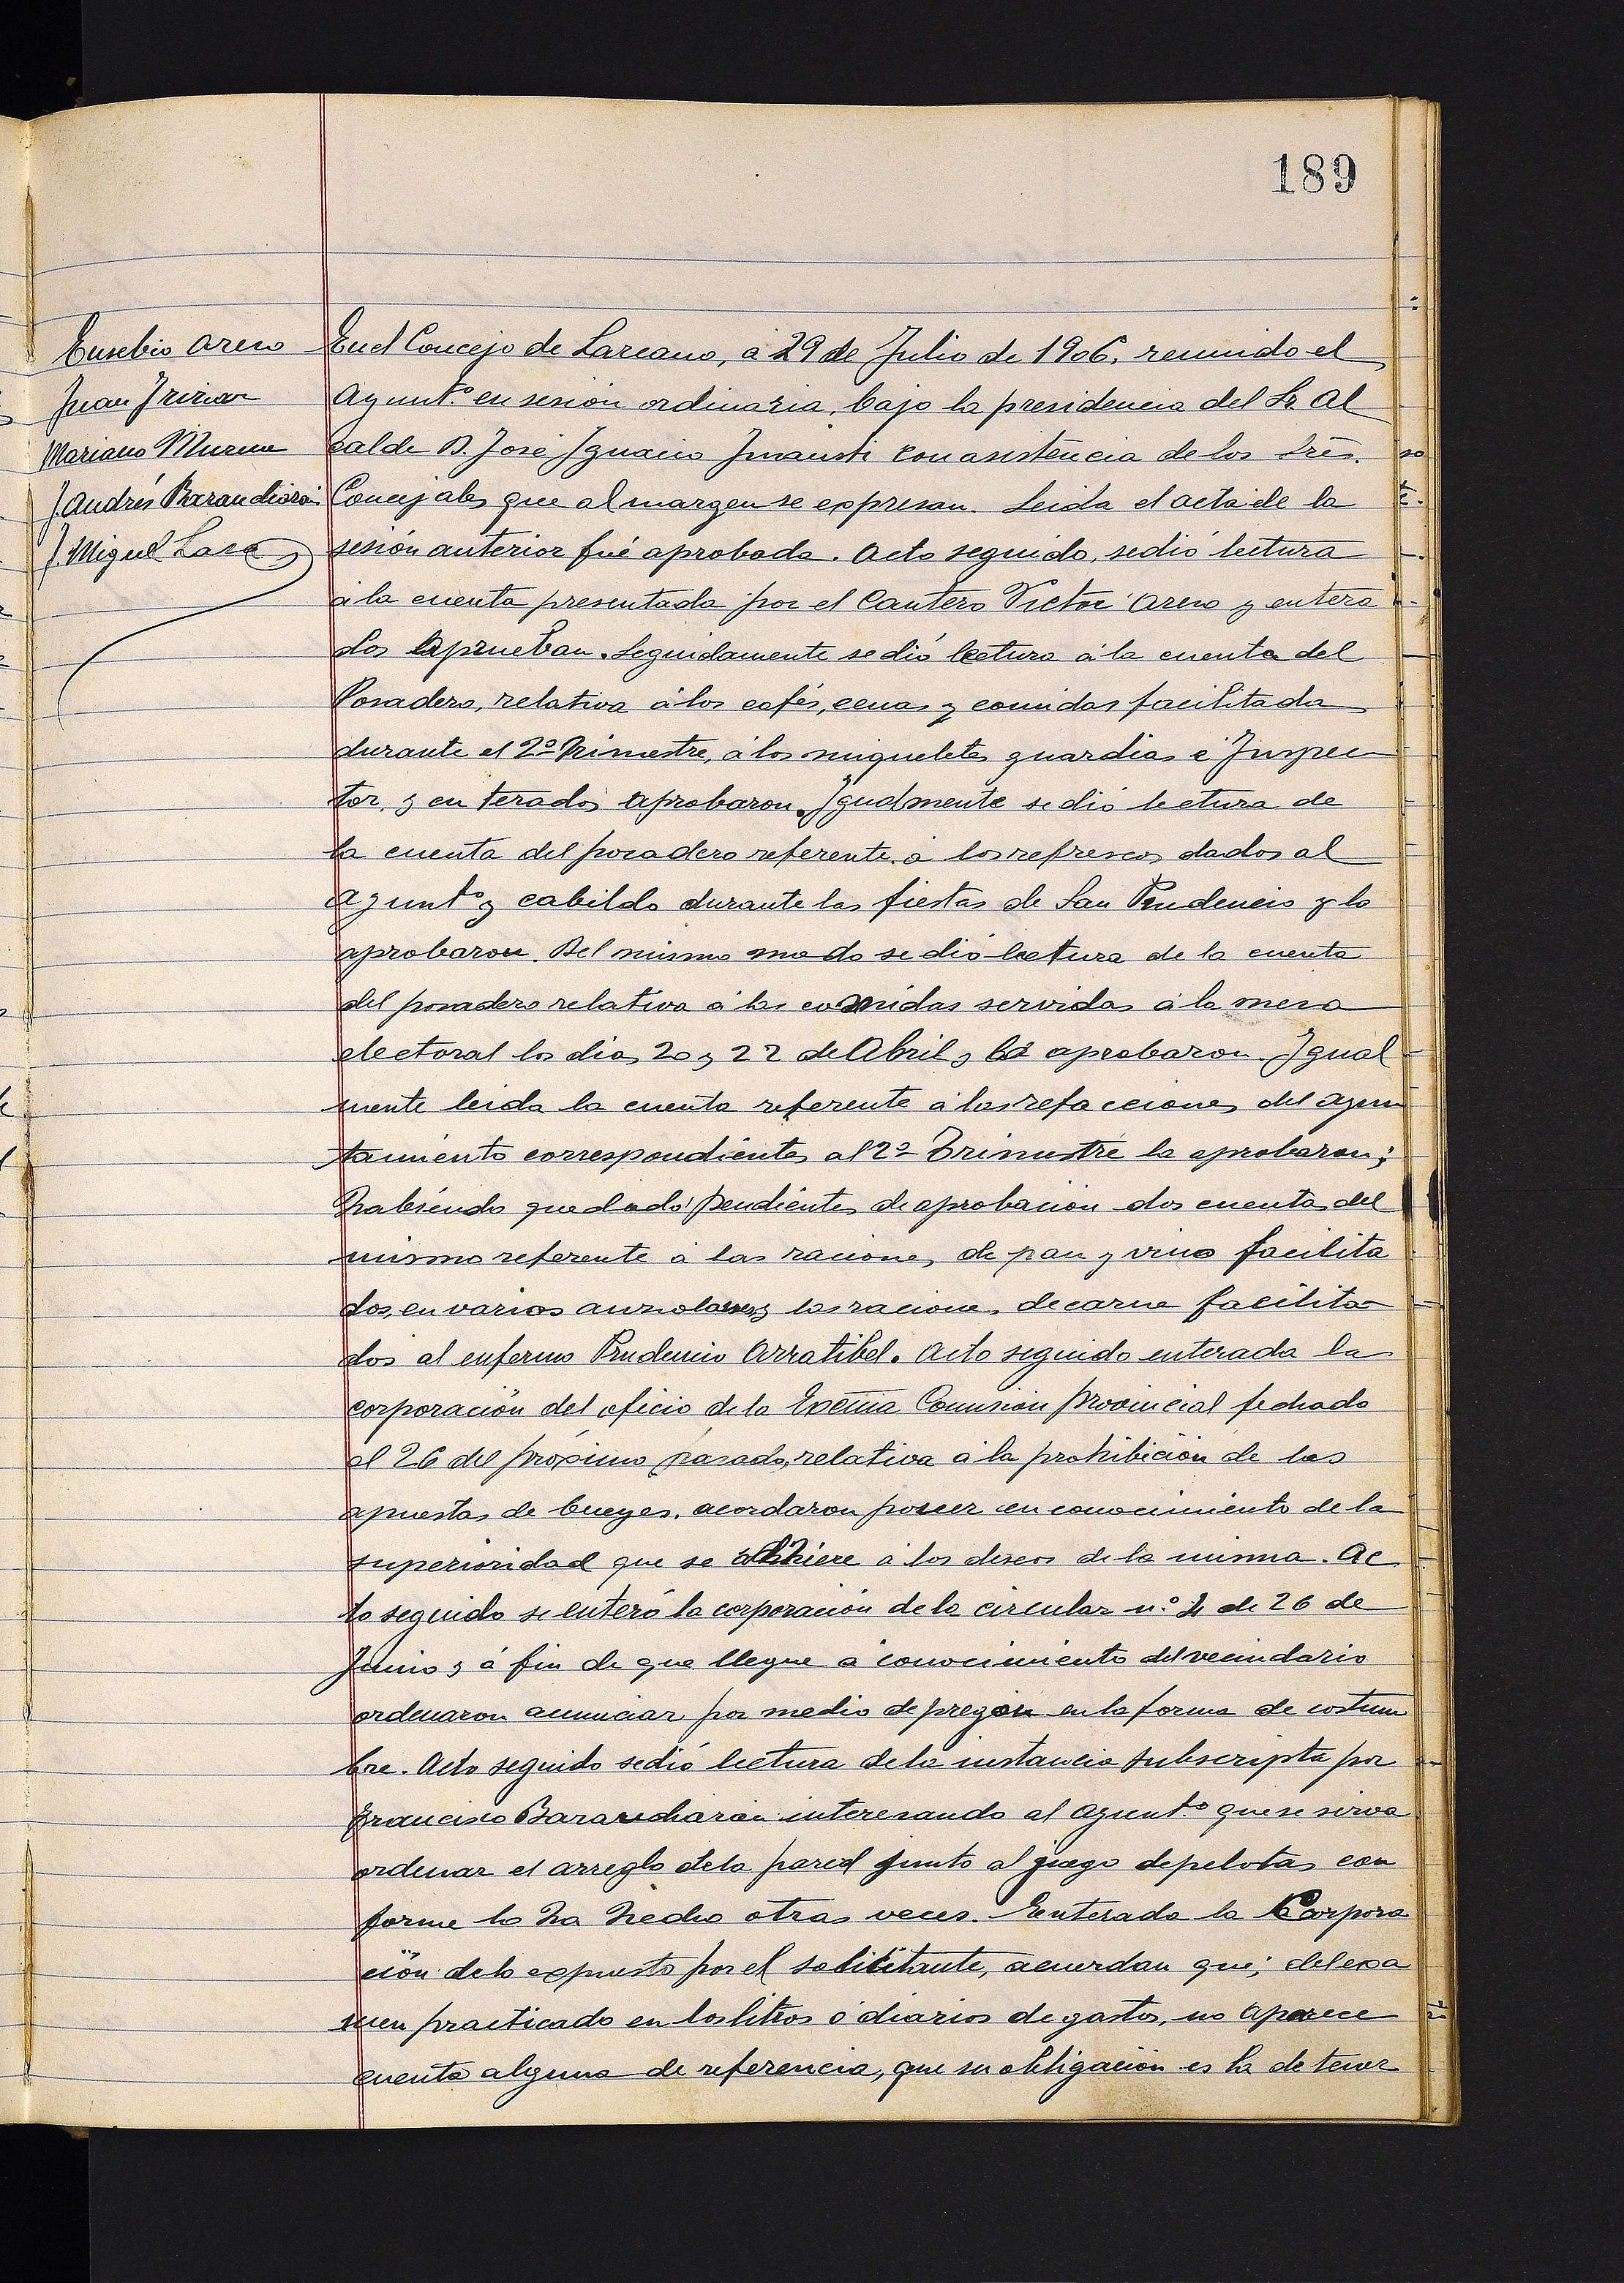 189
Eusebio Areno
Juan Irizar
Mariano Murua
J. Andrés Barandiarán
J. Miguel Lasa
En el Concejo de Lazcano, á 29 de Julio de 1906, reunido el
Ayunt.º en sesión ordinaria, bajo la presidencia del Sr. Al
calde D. José Ignacio con asistencia de los Sres.
Concejales que al margen se expresan. Leida el acta de la
sesión anterior fué aprobada. Acto seguido, se dió lectura
á la cuenta presentada por el Cantero Victor Areno y entera
dos aprueban. Seguidamente se dió lectura á la cuenta del
Posadero, relativa á los cafés, cenas y comidas facilitada
durante el 2º Trimestre, á los miqueletes guardias é Inspec
tor, y enterados aprobaron. Igualmente se dió lectura de
la cuenta del posadero referente á los refrescos dados al
Ayuntº y cabildo durante las fiestas de San Prudencio y lo
aprobaron. Del mismo modo se dió lectura de la cuenta
del posadero relativa á las comidas servidas á la mesa
electoral los dias 20 y 22 de Abril y la aprobaron. Igual
mente leida la cuenta referente á las refacciones del ayun
tamiento correspondientes al 2º Trimestre la aprobaron;
habiendo quedado pendientes de aprobación dos cuentas del
mismo referente á las raciones de pan y vino facilita
dos, en varios y las raciones de carne facilita
dos al enfermo Prudencio Arratibel. Acto seguido enterada la
corporación del oficio de la Excma Comisión Provincial fechado
el 26 del próximo pasado, relativa á la prohibición de las
apuestas de bueyes, acordaron poner en conocimiento de la
superioridad que se adhiere á los deseos de la misma. Ac
to seguido se enteró la corporación de la circular n.º de 26 de
Junio y á fin de que llegue á conocimiento del vecindario
ordenaron anunciar por medio de pregón en la forma de costum
bre. Acto seguido se dió lectura de la instancia subscripta por
Francisco interesando al Ayunt.º que se sirva
ordenar el arreglo de la pared junto al juego de pelotas con
forme lo ha hecho otras veces. Enterada la Corpora
ción de lo expuesto por el solicitante, acuerdan que; del exa
men practicado en los libros ó diarios de gastos, no aparece
cuenta alguna de referencia, que su obligación es la de tener